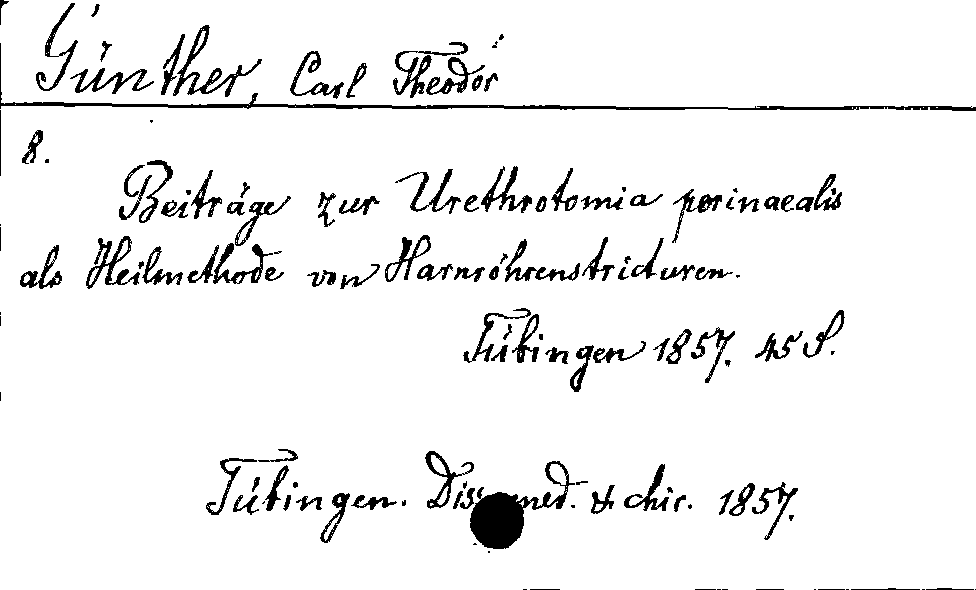 Günther, Carl Theodor
8.
Beiträge zur Urethrotomia perinaealis
als Heilmethode von Harnröhrenstricturen.
Tübingen 1857. 45 S.
Tübingen. Diss. med. & chir. 1857.